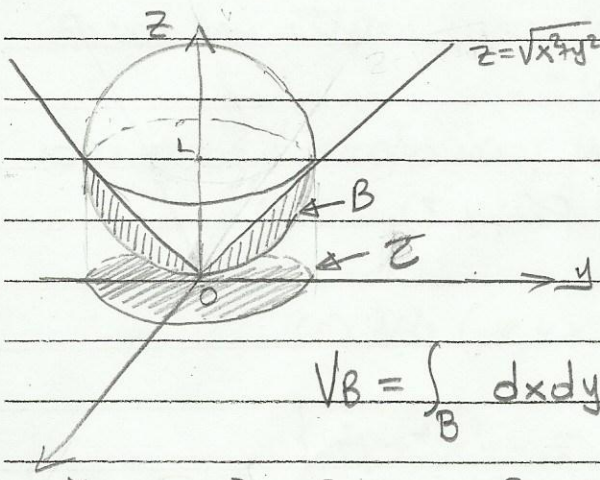 Z
z=√x²+y²
L
B
Z
O
y
VB = ∫_B dxdy